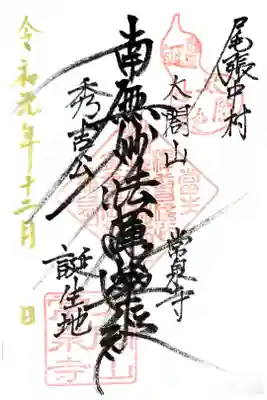 尾張中村
太閤山
常泉寺
南無妙法蓮華経
秀吉公
誕生地
令和元年十二月 日